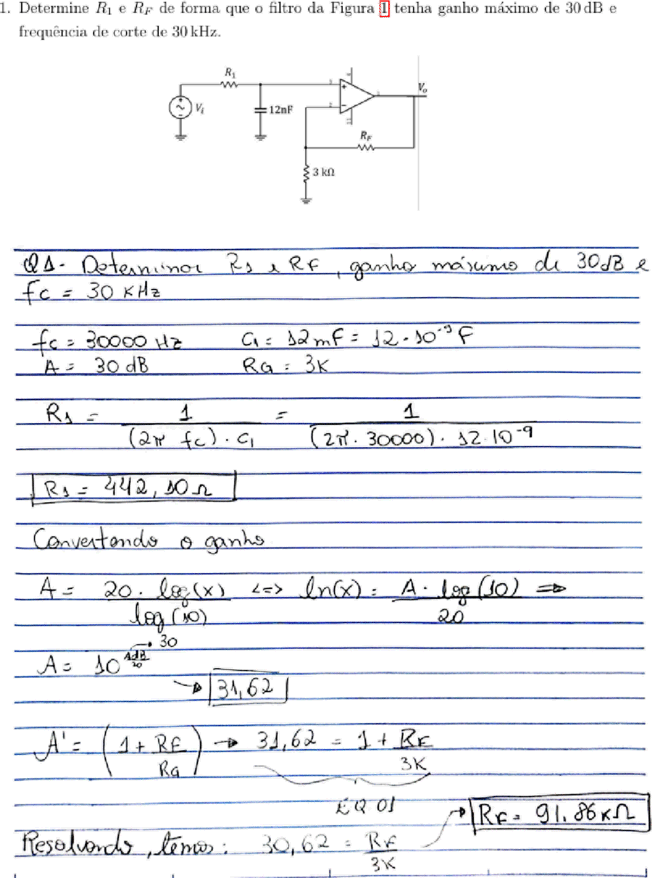 1. Determine R₁ e R_F de forma que o filtro da Figura 1 tenha ganho máximo de 30 dB e
frequência de corte de 30 kHz.
R₁
V_i
12nF
3
+
2
−
4
11
1
V_o
R_F
3 kΩ
Q1- Determinar R1 e RF, ganho máximo de 30dB e
fc = 30 KHz
fc = 30000 Hz C1 = 12nF = 12·10⁻⁹F
A = 30 dB RG = 3K
R1 = 1/((2π fc)·C1) = 1/((2π·30000)·12·10⁻⁹)
R1 = 442,10Ω
Convertendo o ganho
A = 20·log(x)/log(10) <=> ln(x) = A·log(10)/20 =>
A = 10^(AdB/20) → 30
→ 31,62
A' = (1 + RF/RG) → 31,62 = 1 + RF/3K
EQ 01
→ RF = 91,86KΩ
Resolvendo, temos: 30,62 = RF/3K